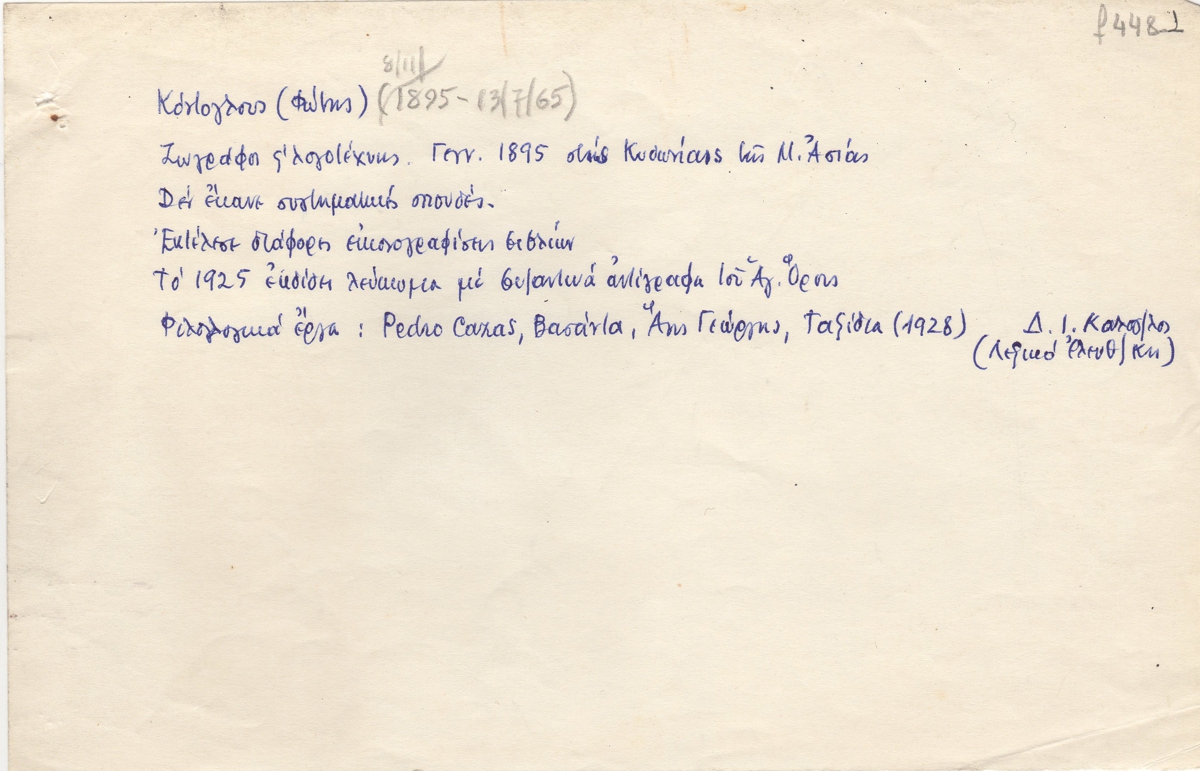 f 448 1
8/11/
Κόντογλους (Φώτης) (1895 - 13/7/65)
Ζωγράφος κ' λογοτέχνης. Γενν. 1895 στις Κυδωνίαις τῆς Μ. Ἀσίας
Δέν ἔκανε συστηματικές σπουδές.
Ἐκτέλεσε διάφορες εἰκονογραφίσεις βιβλίων
Τό 1925 ἐκδίδει λεύκωμα μέ βυζαντινά ἀντίγραφα τοῦ Ἁγ. Ὄρους
Φιλολογικά ἔργα : Pedro Cazas, Βασάντα, Ἅης Γεώργης, Ταξίδια (1928) Δ. Ι. Καλογ/λος
(Λεξικό Ἐλευθ/κη)